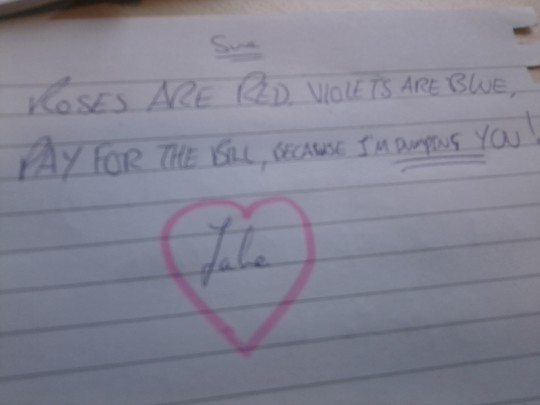 Sue
ROSES ARE RED, VIOLETS ARE BLUE,
PAY FOR THE BILL, BECAUSE I'M DUMPING YOU!
Jake